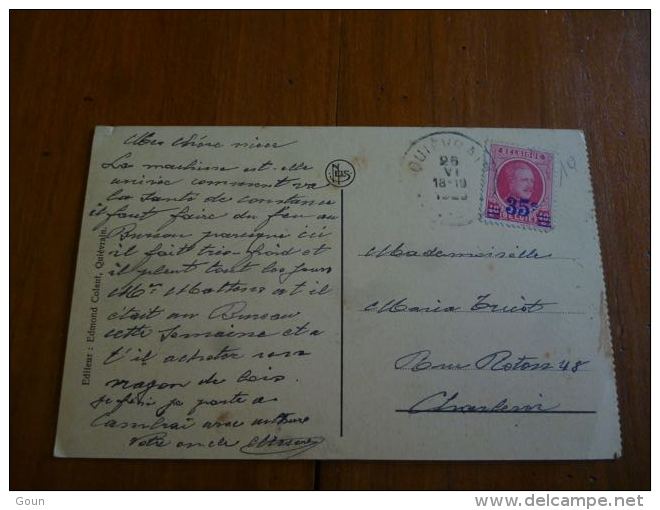 Mes chère nièce
La machine est-elle
arrivée comment va
la santé de constance
il faut faire du feu au
Bureau parceque ici
il fait très froid et
il pleut tout les jours
Mr Mattens at il
était au Bureau
cette semaine et a
t'il acheter son
wagon de bois.
je pars a
Cambrai avec
Votre oncle
Editeur : Edmond Colant, Quiévrain.
NELS
QUIEVRAIN
26
VI
18-19
BELGIQUE
35c
BELGIË
10
Mademoiselle
Maria Tricot
Rue Roton 48
Charleroi
Goun
delcampe.net